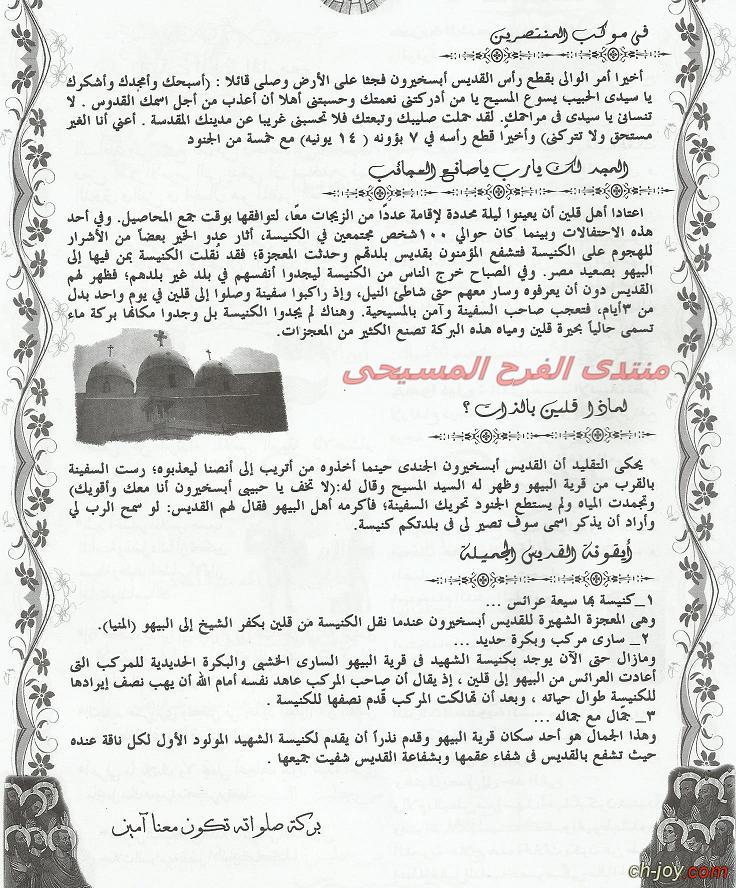 فى موكب المنتصرين
أخيرا أمر الوالى بقطع رأس القديس أبسخيرون فجثا على الأرض وصلى قائلا : (أسبحك وأمجدك وأشكرك
يا سيدى الحبيب يسوع المسيح يا من أدركتنى نعمتك وحسبتنى أهلا أن أعذب من أجل اسمك القدوس . لا
تنسانى يا سيدى فى مراحمك. لقد حملت صليبك وتبعتك فلا تحسبنى غريبا عن مدينتك المقدسة . أعني أنا الغير
مستحق ولا تتركنى) وأخيرًا قطع رأسه في ٧ بؤونه ( ١٤ يونيه) مع خمسة من الجنود
المجد لك يارب ياصانع العجائب
اعتادا أهل قلين أن يعينوا ليلة محددة لإقامة عددًا من الزيجات معًا، لتوافقها بوقت جمع المحاصيل. وفي أحد
هذه الاحتفالات وبينما كان حوالي ١٠٠شخص مجتمعين في الكنيسة، أثار عدو الخير بعضاً من الأشرار
للهجوم على الكنيسة فتشفع المؤمنون بقديس بلدتهم وحدثت المعجزة؛ فقد نُقلت الكنيسة بمن فيها إلى
البيهو بصعيد مصر. وفي الصباح خرج الناس من الكنيسة ليجدوا أنفسهم في بلد غير بلدهم؛ فظهر لهم
القديس دون أن يعرفوه وسار معهم حتى شاطئ النيل، وإذ راكبوا سفينة وصلوا إلى قلين في يوم واحد بدل
من ٣أيام، فتعجب صاحب السفينة وآمن بالمسيحية. وهناك لم يجدوا الكنيسة بل وجدوا مكانها بركة ماء
تسمى حالياً بحيرة قلين ومياه هذه البركة تصنع الكثير من المعجزات.
منتدى الفرح المسيحى
لماذا قلين بالذات ؟
يحكى التقليد أن القديس أبسخيرون الجندى حينما أخذوه من أتريب إلى أنصنا ليعذبوه؛ رست السفينة
بالقرب من قرية البيهو وظهر له السيد المسيح وقال له:(لا تخف يا حبيبى أبسخيرون أنا معك وأقويك)
وتجمدت المياه ولم يستطع الجنود تحريك السفينة؛ فأكرمه أهل البيهو فقال لهم القديس: لو سمح الرب لي
وأراد أن يذكر اسمى سوف تصير لى فى بلدتكم كنيسة.
أيقونة القديس الجميلة
١_كنيسة بها سبعة عرائس ...
وهى المعجزة الشهيرة للقديس أبسخيرون عندما نقل الكنيسة من قلين بكفر الشيخ إلى البيهو (المنيا).
٢_ سارى مركب وبكرة حديد ...
ومازال حتى الآن يوجد بكنيسة الشهيد فى قرية البيهو السارى الخشبى والبكرة الحديدية للمركب التى
أعادت العرائس من البيهو إلى قلين ، إذ يقال أن صاحب المركب عاهد نفسه أمام الله أن يهب نصف إيرادها
للكنيسة طوال حياته ، وبعد أن تهالكت المركب قدّم نصفها للكنيسة .
٣_ جمّال مع جماله ...
وهذا الجمال هو أحد سكان قرية البيهو وقدم نذراً أن يقدم لكنيسة الشهيد المولود الأول لكل ناقة عنده
حيث تشفع بالقديس فى شفاء عقمها وبشفاعة القديس شفيت جميعها .
بركة صلواته تكون معنا آمين
ch-joy.com